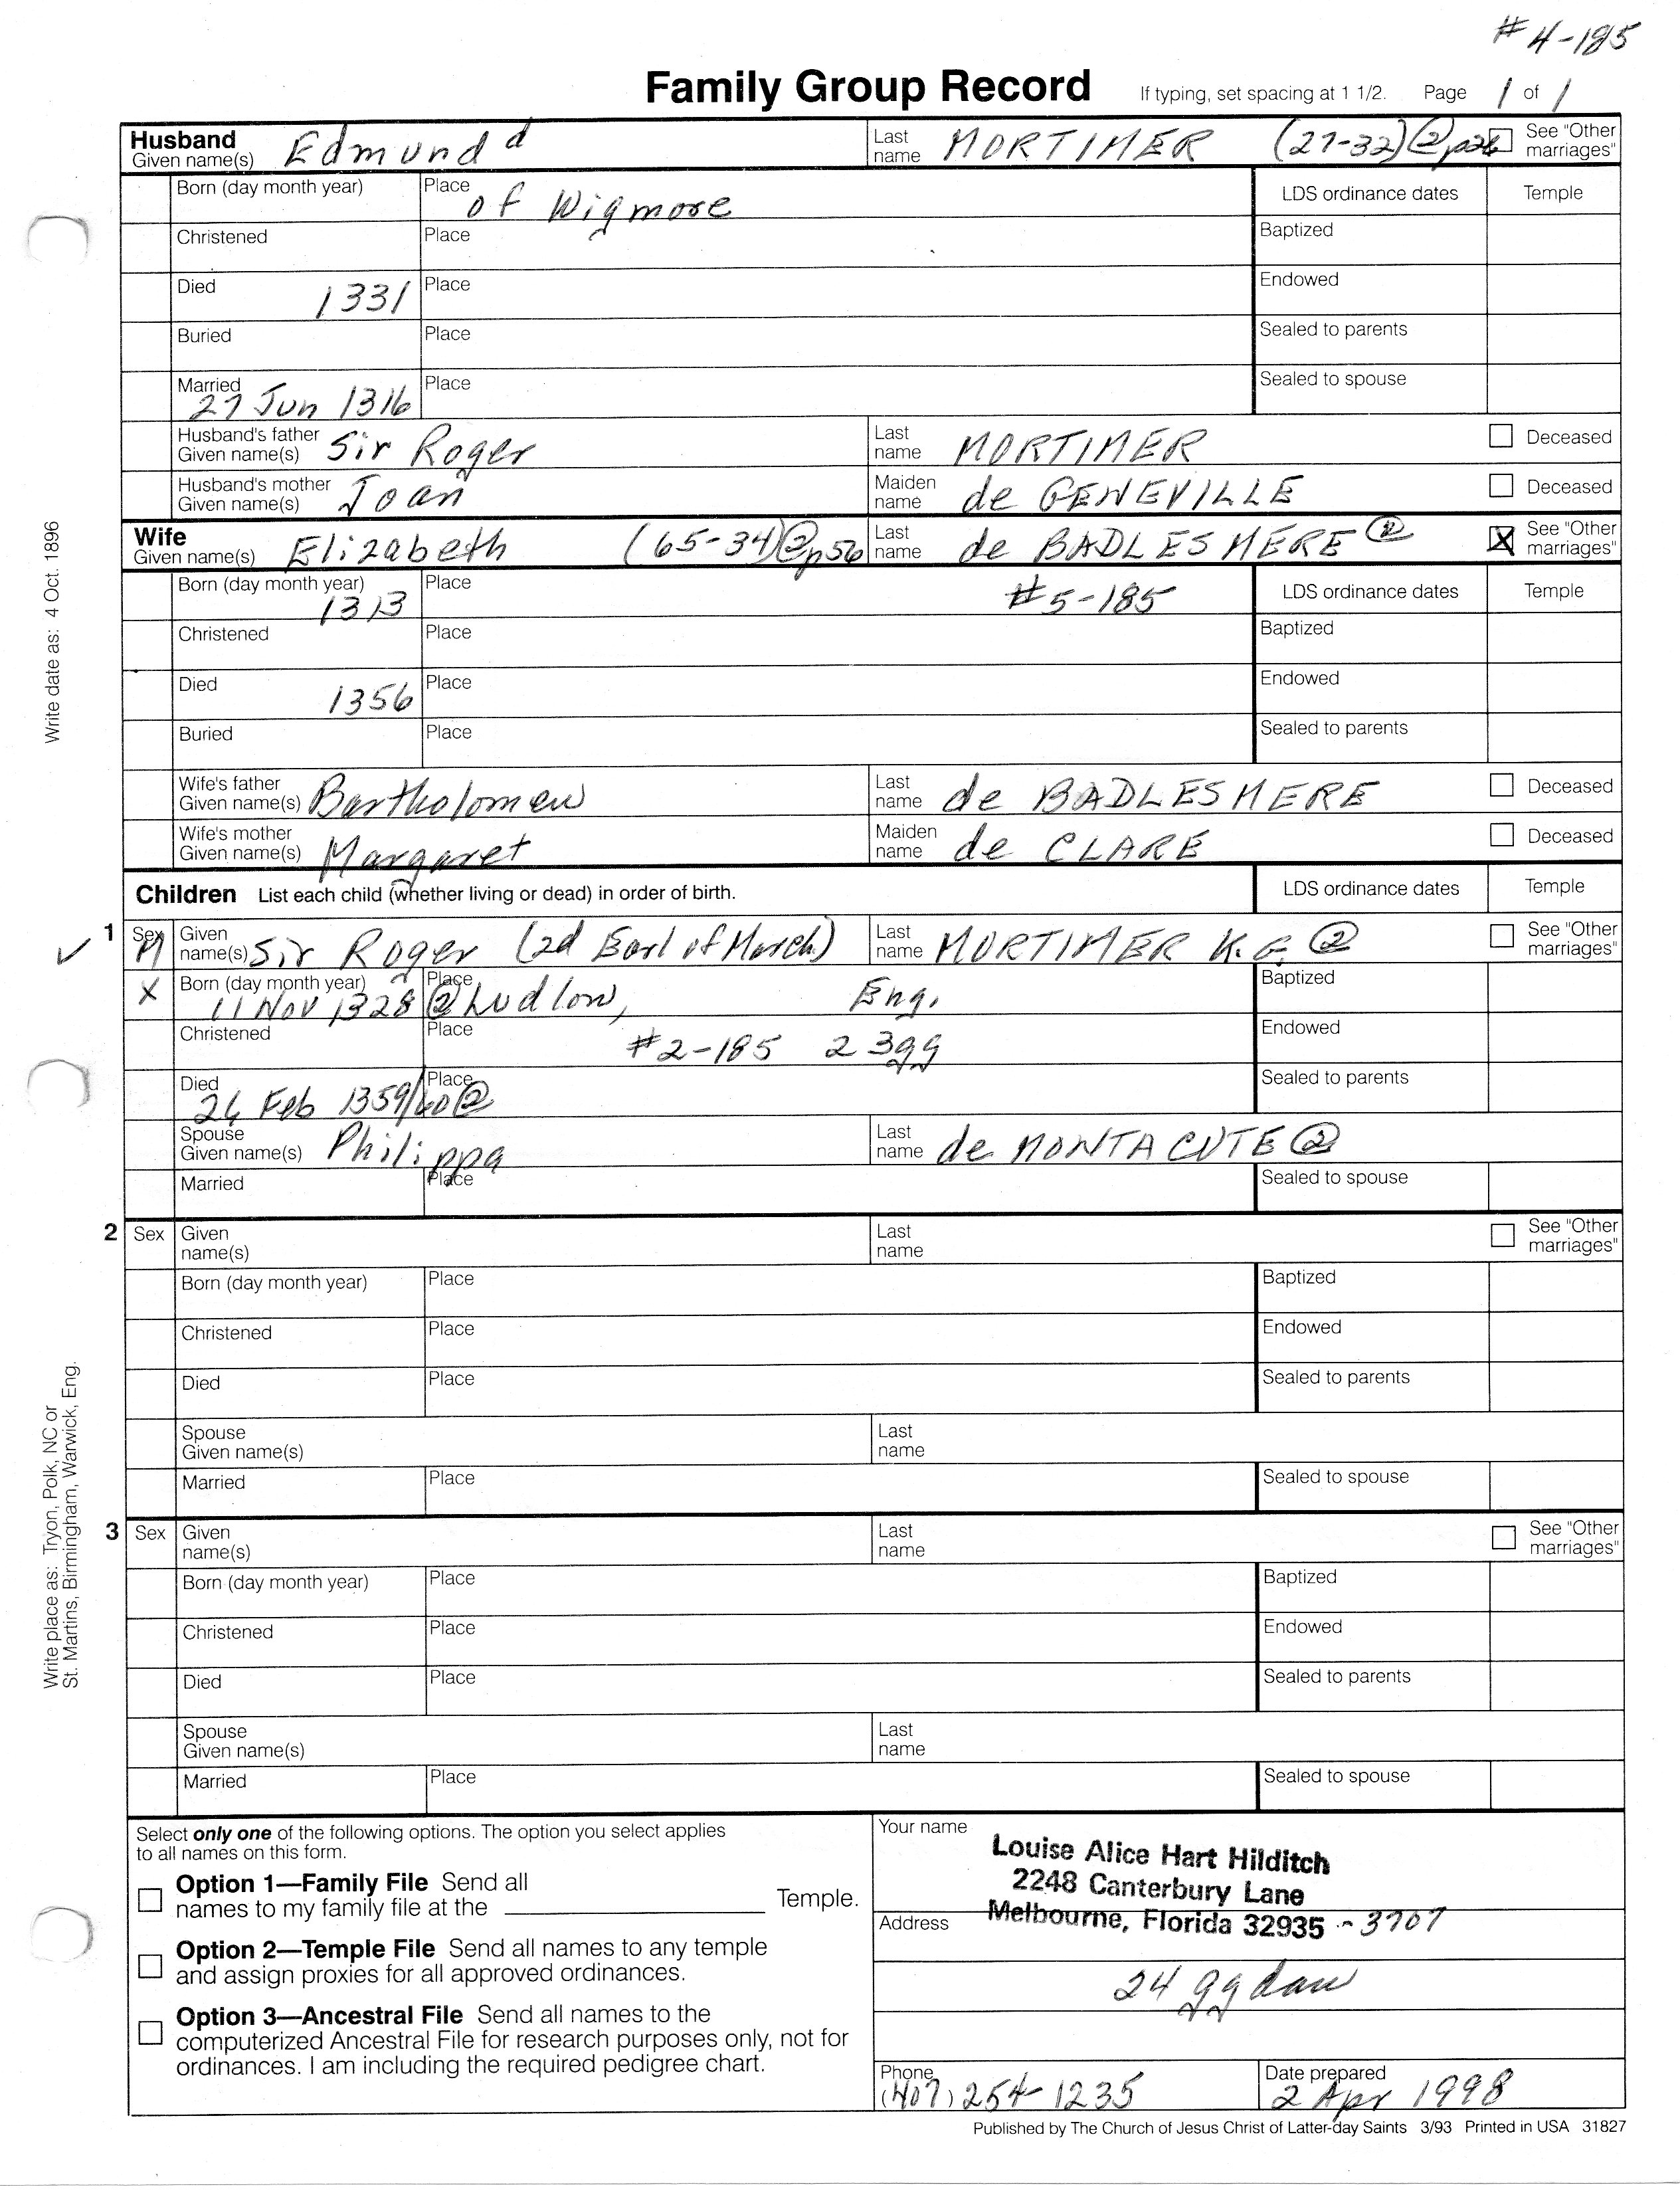 #4-185
Family Group Record If typing, set spacing at 1 1/2. Page 1 of 1
Husband Given name(s) Edmund d Last name MORTIMER (27-32) @ See "Other marriages"
Born (day month year) Place of Wigmore LDS ordinance dates Temple
Christened Place Baptized
Died 1331 Place Endowed
Buried Place Sealed to parents
Married 27 Jun 1316 Place Sealed to spouse
Husband's father Given name(s) Sir Roger Last name MORTIMER Deceased
Husband's mother Given name(s) Joan Maiden name de GENEVILLE Deceased
Wife Given name(s) Elizabeth (65-34)@p56 Last name de BADLESMERE ② X See "Other marriages"
Born (day month year) 1313 Place #5-185 LDS ordinance dates Temple
Christened Place Baptized
Died 1356 Place Endowed
Buried Place Sealed to parents
Wife's father Given name(s) Bartholomew Last name de BADLESMERE Deceased
Wife's mother Given name(s) Margaret Maiden name de CLARE Deceased
Children List each child (whether living or dead) in order of birth. LDS ordinance dates Temple
✓ 1 Sex M Given name(s) Sir Roger (2d Earl of March) Last name MORTIMER K.G. ② See "Other marriages"
X Born (day month year) 11 Nov 1328 ② Place Ludlow, Eng. Baptized
Christened Place #2-185 23gg Endowed
Died 26 Feb 1359/60 ② Place Sealed to parents
Spouse Given name(s) Philippa Last name de MONTACUTE ②
Married Place Sealed to spouse
2 Sex Given name(s) Last name See "Other marriages"
Born (day month year) Place Baptized
Christened Place Endowed
Died Place Sealed to parents
Spouse Given name(s) Last name
Married Place Sealed to spouse
3 Sex Given name(s) Last name See "Other marriages"
Born (day month year) Place Baptized
Christened Place Endowed
Died Place Sealed to parents
Spouse Given name(s) Last name
Married Place Sealed to spouse
Select only one of the following options. The option you select applies
to all names on this form.
Option 1—Family File Send all
names to my family file at the Temple.
Option 2—Temple File Send all names to any temple
and assign proxies for all approved ordinances.
Option 3—Ancestral File Send all names to the
computerized Ancestral File for research purposes only, not for
ordinances. I am including the required pedigree chart.
Your name Louise Alice Hart Hilditch
2248 Canterbury Lane
Address Melbourne, Florida 32935 -3707
24 gg dau
Phone (407) 254-1235 Date prepared 2 Apr 1998
Published by The Church of Jesus Christ of Latter-day Saints 3/93 Printed in USA 31827
Write date as: 4 Oct. 1896
Write place as: Tryon, Polk, NC or
St. Martins, Birmingham, Warwick, Eng.